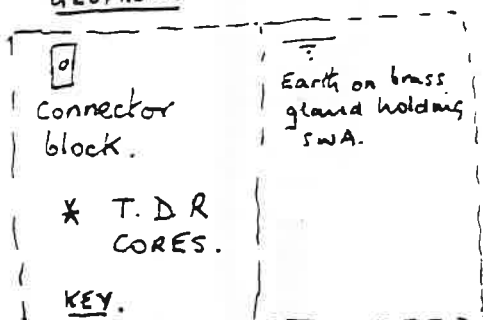 Connector
block.
* T.D.R
CORES.
KEY.
Earth on brass
gland holding
SWA.